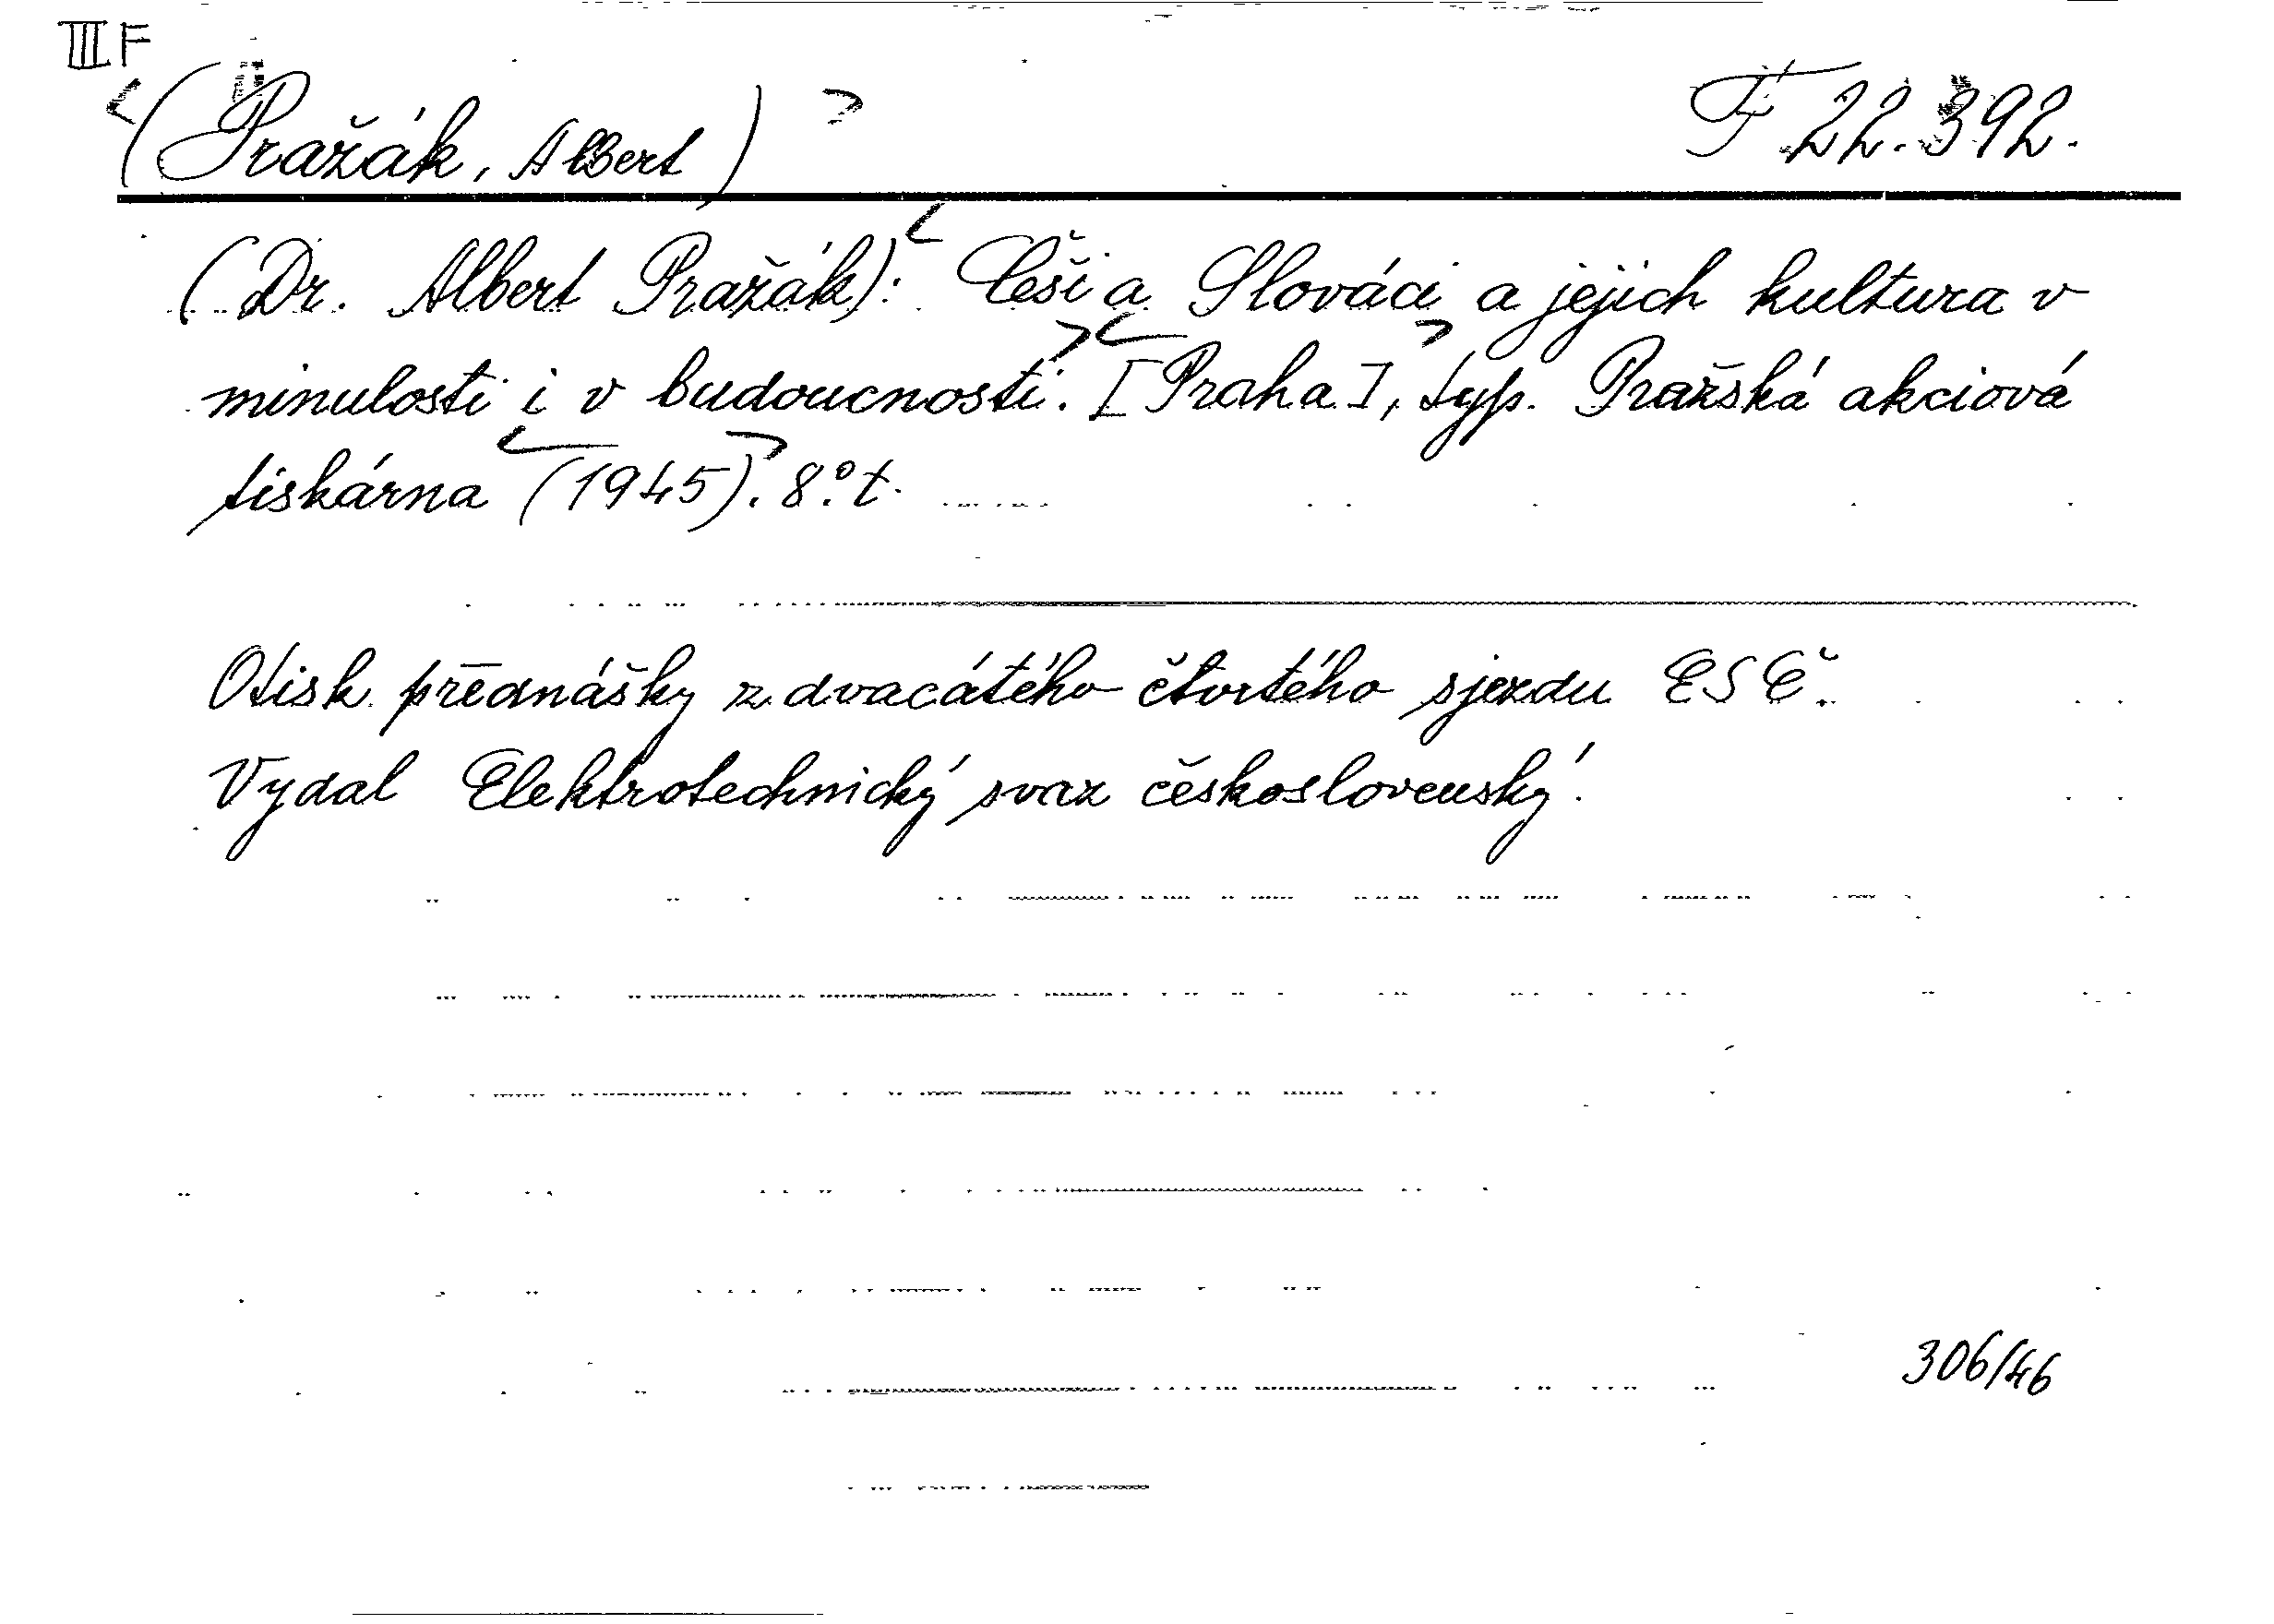 III F
(Pražák, Albert)
F 22.392.
(Dr. Albert Pražák): Češi a Slováci a jejich kultura v
minulosti i v budoucnosti. [Praha], typ. Pražská akciová
tiskárna (1945). 8°. t.
Otisk přednášky z dvacátého čtvrtého sjezdu ESČ.
Vydal Elektrotechnický svaz československý.
306/46